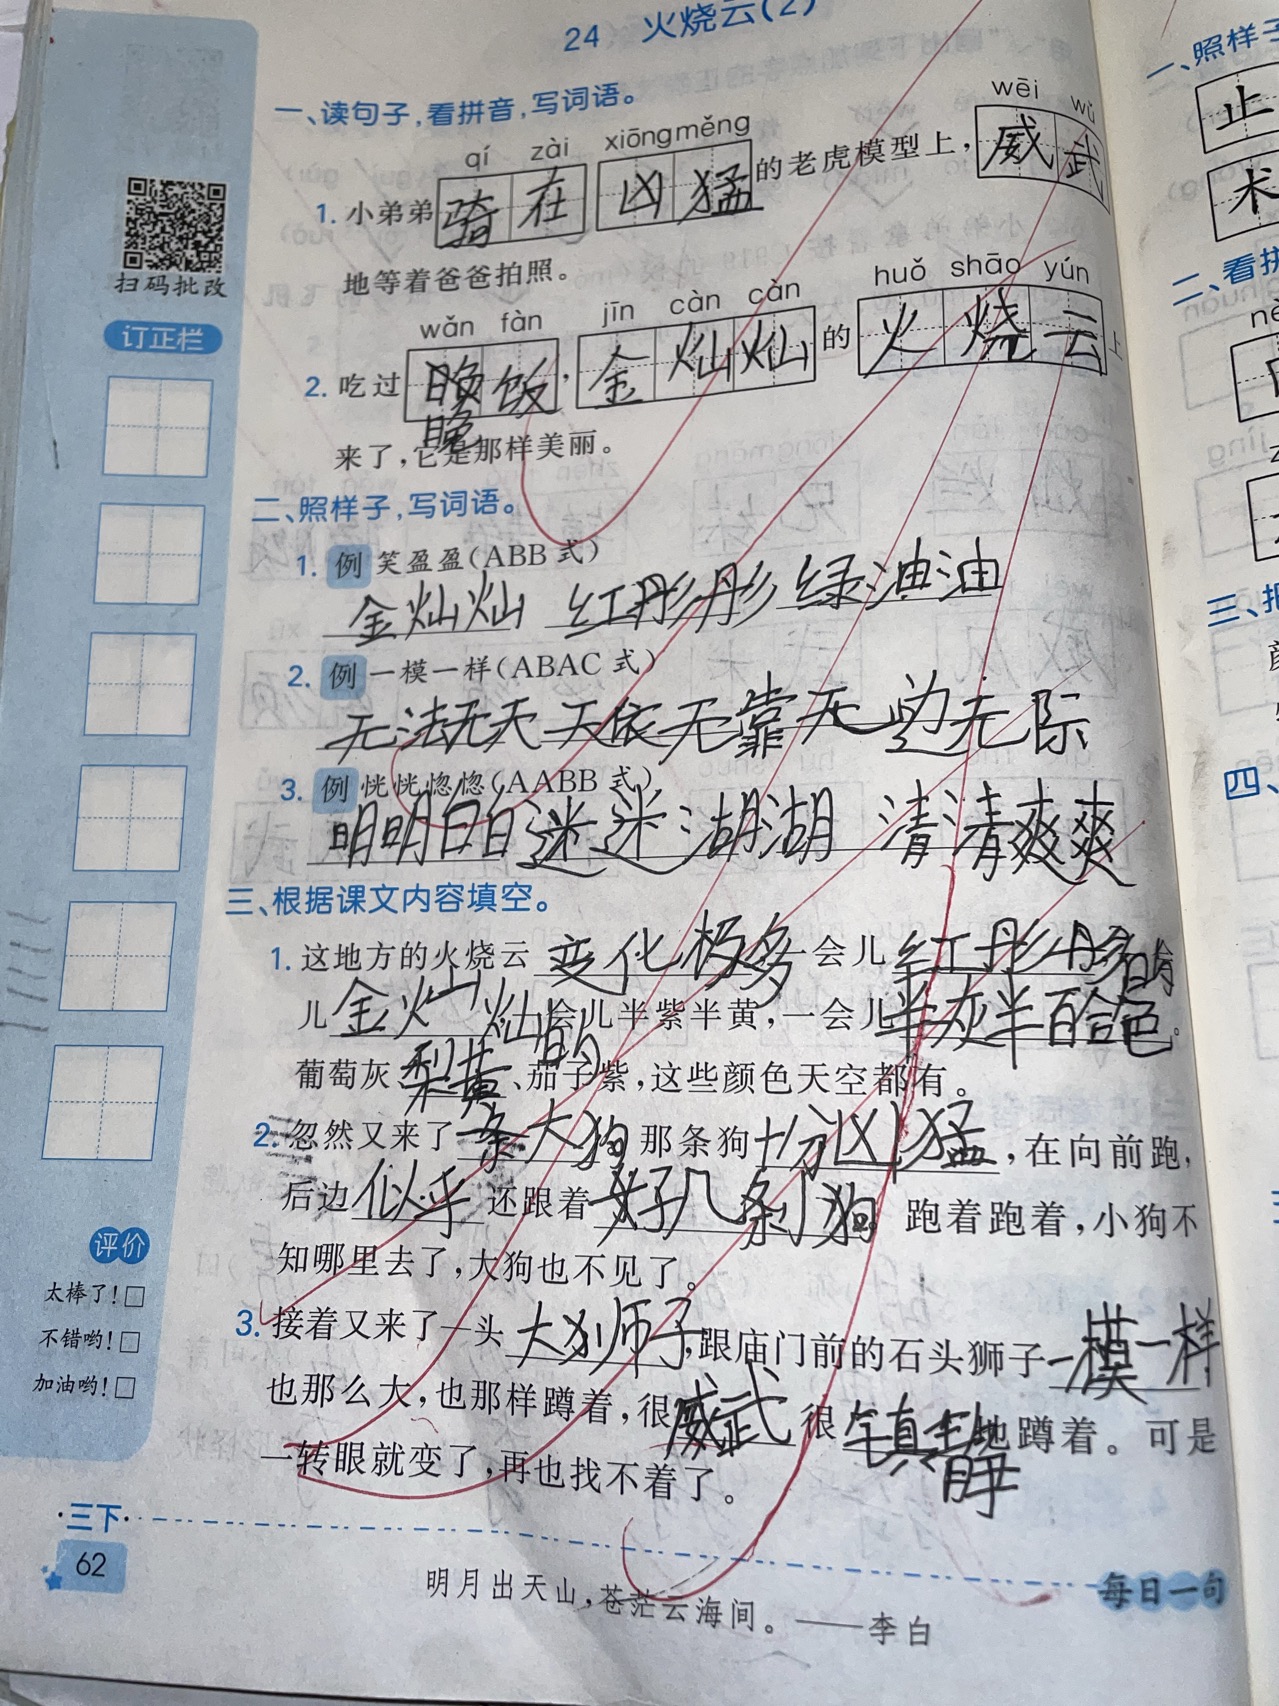 24 火烧云(2)
一、读句子，看拼音，写词语。
qí zài xiōngměng wēi wǔ
1. 小弟弟骑在凶猛的老虎模型上，威武
地等着爸爸拍照。
wǎn fàn jīn càn càn huǒ shāo yún
2. 吃过晚饭，金灿灿的火烧云上
晚
来了，它是那样美丽。
二、照样子，写词语。
1. 例 笑盈盈(ABB式)
金灿灿 红彤彤 绿油油
2. 例 一模一样(ABAC式)
无法无天 无依无靠 无边无际
3. 例 恍恍惚惚(AABB式)
明明白白 迷迷湖湖 清清爽爽
三、根据课文内容填空。
1. 这地方的火烧云变化极多一会儿红彤彤的
儿金灿灿的会儿半紫半黄，一会儿半灰半百合色。
葡萄灰、梨黄、茄子紫，这些颜色天空都有。
2. 忽然又来了条大狗那条狗十分凶猛，在向前跑，
后边似乎还跟着好几条小狗。跑着跑着，小狗不
知哪里去了，大狗也不见了。
3. 接着又来了一头大狮子，跟庙门前的石头狮子一模一样
也那么大，也那样蹲着，很威武很镇静地蹲着。可是
一转眼就变了，再也找不着了。
扫码批改
订正栏
评价
太棒了！□
不错哟！□
加油哟！□
·三下·
62
明月出天山，苍茫云海间。——李白
每日一句
一、照样子
止
术
二、看拼
三、
四、